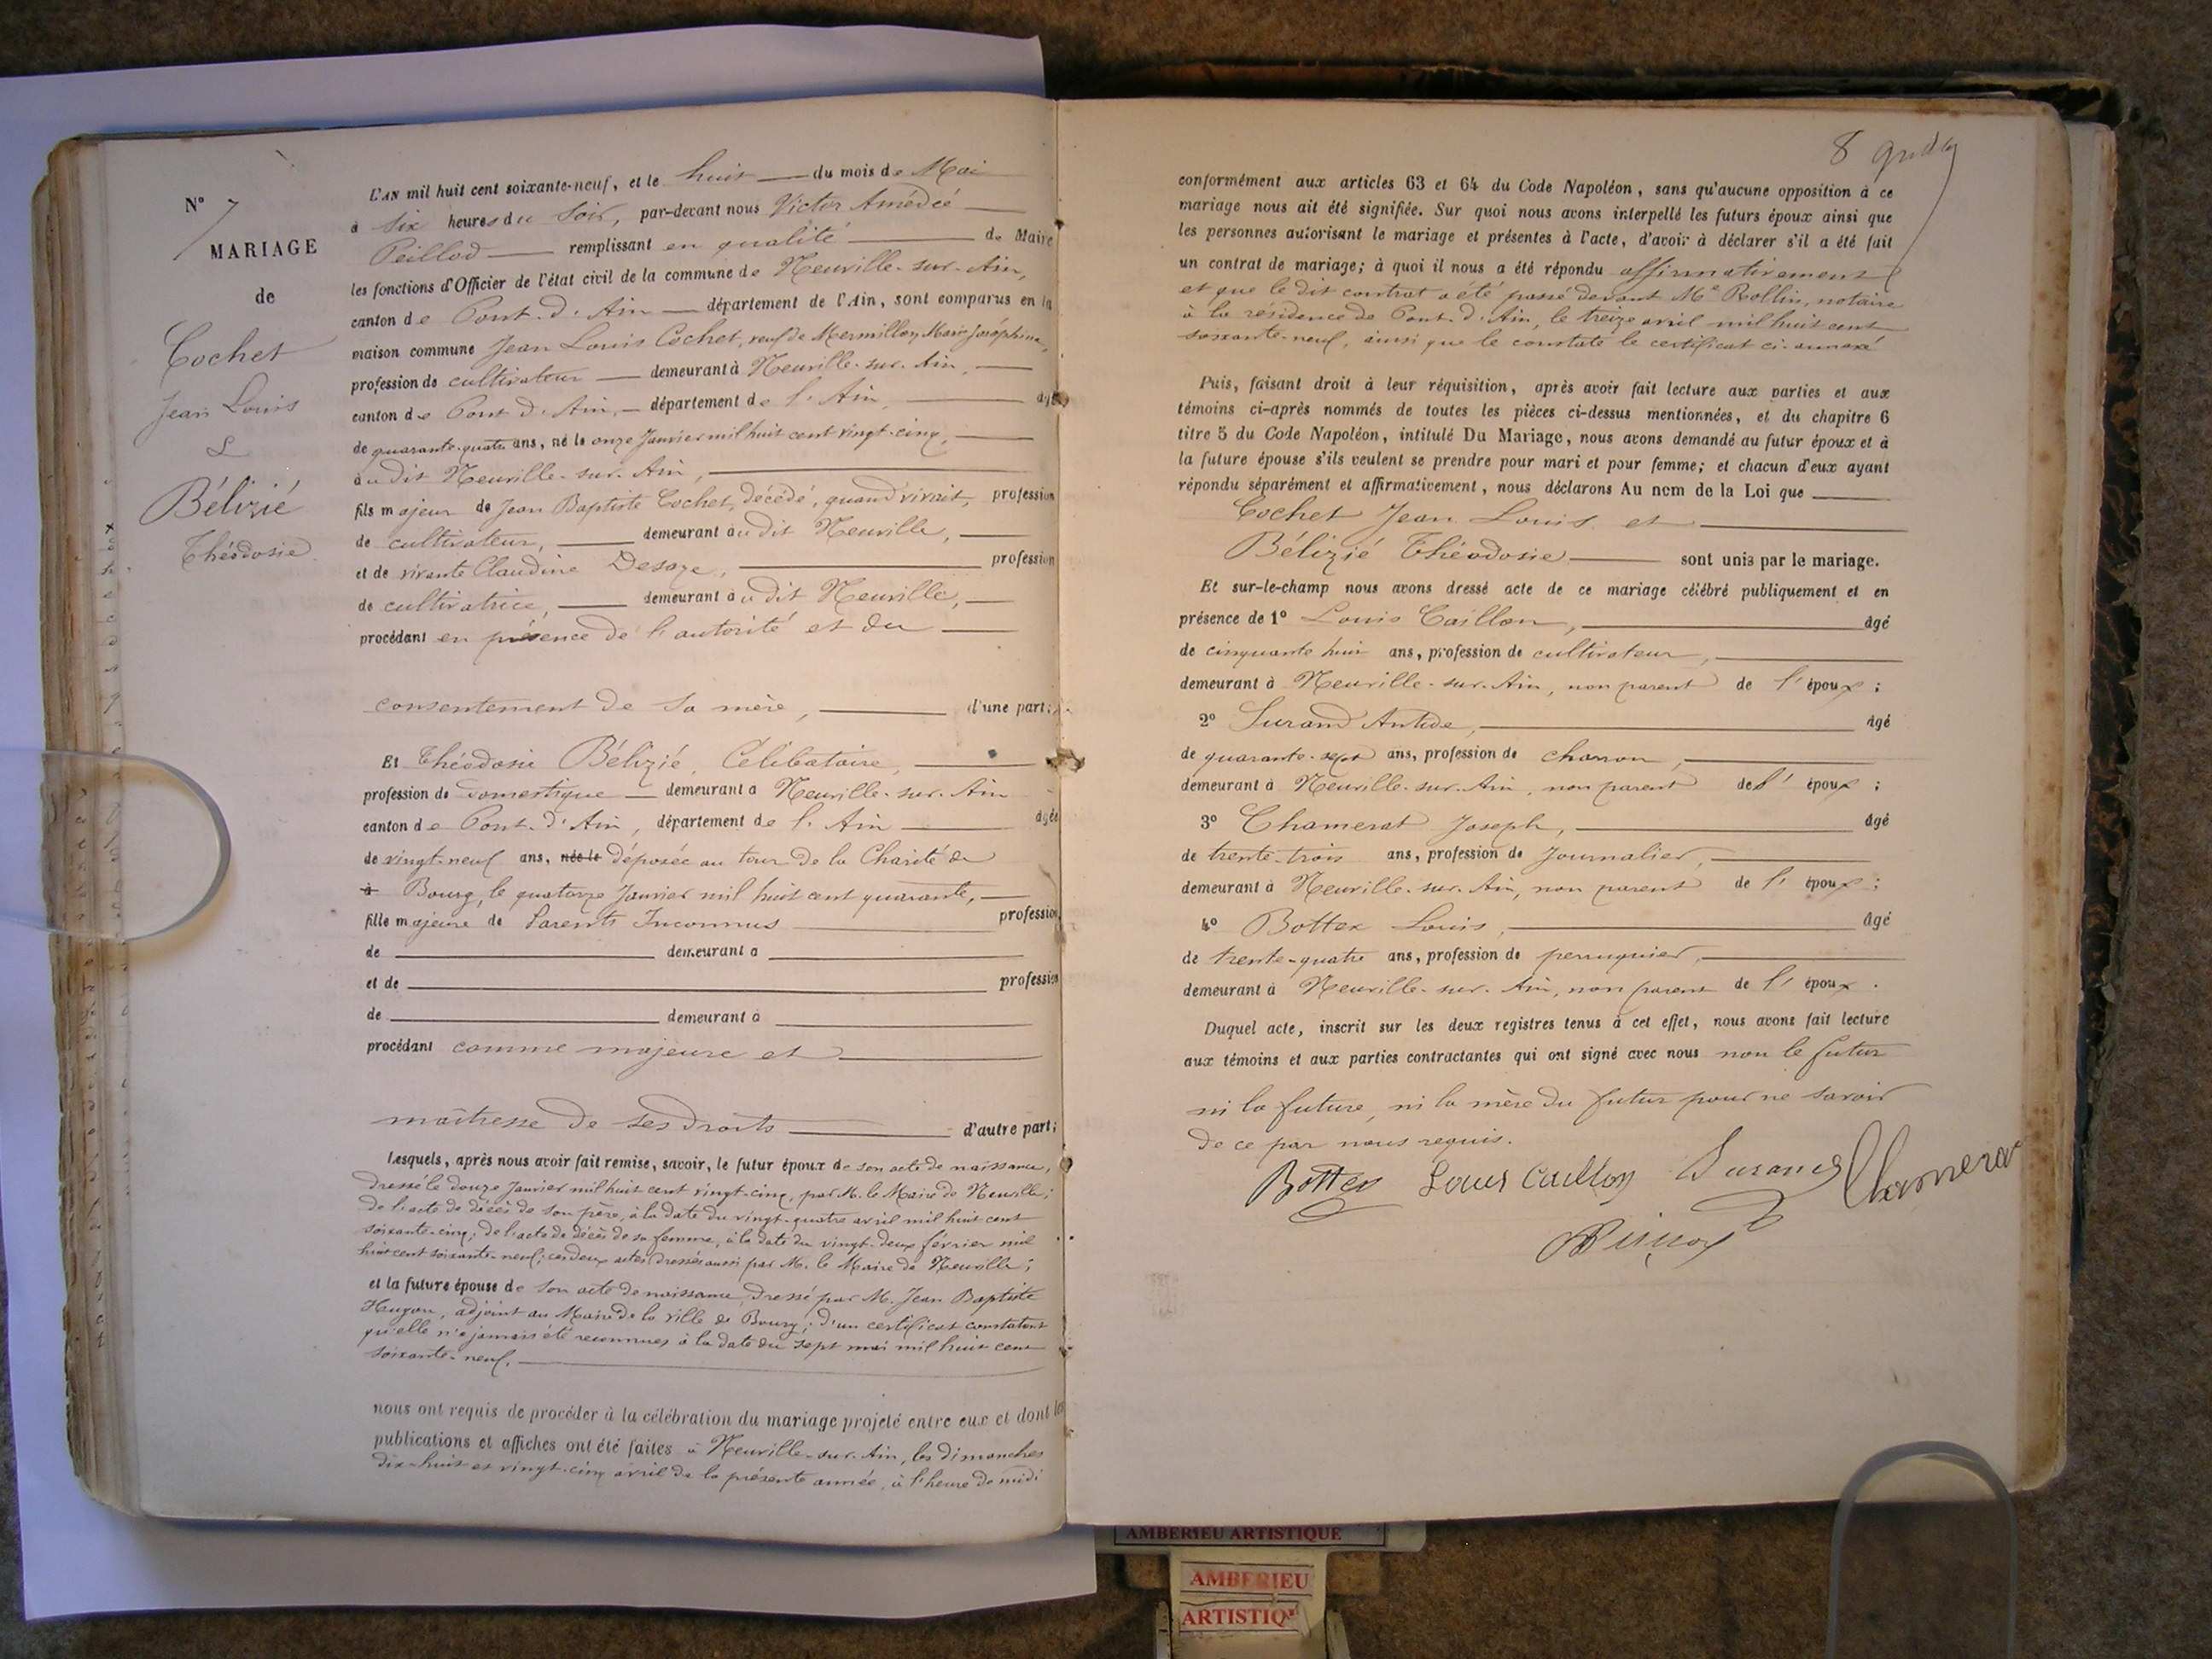 N° 7
MARIAGE
de
Cochet
Jean Louis
&
Bélizié
Théodosie
L'AN mil huit cent soixante-neuf, et le huit du mois de Mai
à six heures du soir, par-devant nous Victor Amédée
Peillod remplissant en qualité de Maire
les fonctions d'Officier de l'état civil de la commune de Neuville-sur-Ain,
canton de Pont-d'Ain département de l'Ain, sont comparus en la
maison commune Jean Louis Cochet, veuf de Mermillon Marie Joséphine,
profession de cultivateur demeurant à Neuville-sur-Ain,
canton de Pont d'Ain, département de l'Ain, âgé
de quarante-quatre ans, né le onze Janvier mil huit cent vingt-cinq,
audit Neuville-sur-Ain,
fils majeur de Jean Baptiste Cochet, décédé, quand vivait, profession
de cultivateur, demeurant audit Neuville,
et de vivante Claudine Desaze, profession
de cultivatrice, demeurant audit Neuville,
procédant en présence de l'autorité et du
consentement de sa mère, d'une part;
Et Théodosie Bélizié, Célibataire,
profession de domestique demeurant à Neuville-sur-Ain
canton de Pont-d'Ain, département de l'Ain âgée
de vingt-neuf ans, née le déposée au tour de la Charité de
à Bourg, le quatorze Janvier mil huit cent quarante,
fille majeure de Parents Inconnus profession
de demeurant à
et de profession
de demeurant à
procédant comme majeure et
maîtresse de ses droits d'autre part;
Lesquels, après nous avoir fait remise, savoir, le futur époux de son acte de naissance,
dressé le douze Janvier mil huit cent vingt-cinq, par M. le Maire de Neuville;
de l'acte de décès de son père, à la date du vingt-quatre avril mil huit cent
soixante-cinq; de l'acte de décès de sa femme, à la date du vingt-deux février mil
huit cent soixante-neuf; ces deux actes dressés aussi par M. le Maire de Neuville;
et la future épouse de son acte de naissance dressé par M. Jean Baptiste
Hugon, adjoint au Maire de la ville de Bourg; d'un certificat constatant
qu'elle n'a jamais été reconnues à la date du sept mai mil huit cent
soixante-neuf,
nous ont requis de procéder à la célébration du mariage projeté entre eux et dont les
publications et affiches ont été faites à Neuville-sur-Ain, les dimanches
dix-huit et vingt-cinq avril de la présente année, à l'heure de midi
8
conformément aux articles 63 et 64 du Code Napoléon, sans qu'aucune opposition à ce
mariage nous ait été signifiée. Sur quoi nous avons interpellé les futurs époux ainsi que
les personnes autorisant le mariage et présentes à l'acte, d'avoir à déclarer s'il a été fait
un contrat de mariage; à quoi il nous a été répondu affirmativement
et que le dit contrat a été passé devant Me Rollin, notaire
à la résidence de Pont-d'Ain, le treize avril mil huit cent
soixante-neuf, ainsi que le constate le certificat ci-annexé
Puis, faisant droit à leur réquisition, après avoir fait lecture aux parties et aux
témoins ci-après nommés de toutes les pièces ci-dessus mentionnées, et du chapitre 6
titre 5 du Code Napoléon, intitulé Du Mariage, nous avons demandé au futur époux et à
la future épouse s'ils veulent se prendre pour mari et pour femme; et chacun d'eux ayant
répondu séparément et affirmativement, nous déclarons Au nom de la Loi que
Cochet Jean Louis, et
Bélizié Théodosie sont unis par le mariage.
Et sur-le-champ nous avons dressé acte de ce mariage célébré publiquement et en
présence de 1° Louis Caillon, âgé
de cinquante huit ans, profession de cultivateur,
demeurant à Neuville-sur-Ain, non parent de l'époux;
2° Surand Antide, âgé
de quarante-sept ans, profession de charron,
demeurant à Neuville-sur-Ain, non parent de l'époux;
3° Chamerat Joseph, âgé
de trente-trois ans, profession de Journalier,
demeurant à Neuville-sur-Ain, non parent de l'époux;
4° Bottex Louis, âgé
de trente-quatre ans, profession de perruquier,
demeurant à Neuville-sur-Ain, non parent de l'époux.
Duquel acte, inscrit sur les deux registres tenus à cet effet, nous avons fait lecture
aux témoins et aux parties contractantes qui ont signé avec nous non le futur
ni la future, ni la mère du futur pour ne savoir
de ce par nous requis.
Bottex Louis Caillon Surand Chamerat
AMBERIEU ARTISTIQUE
AMBERIEU
ARTISTIQ